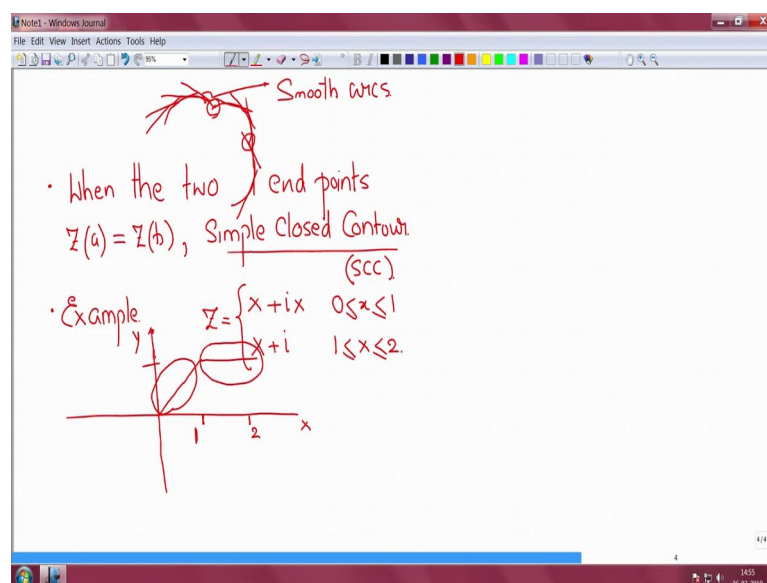 Note1 - Windows Journal
File Edit View Insert Actions Tools Help
95%
B I
Smooth arcs
• When the two end points
Z(a) = Z(b), Simple Closed Contour
(SCC)
• Example
Z = { x + ix 0 ≤ x ≤ 1
x + i 1 ≤ x ≤ 2.
y
1 2 x
4/4
4
14:55